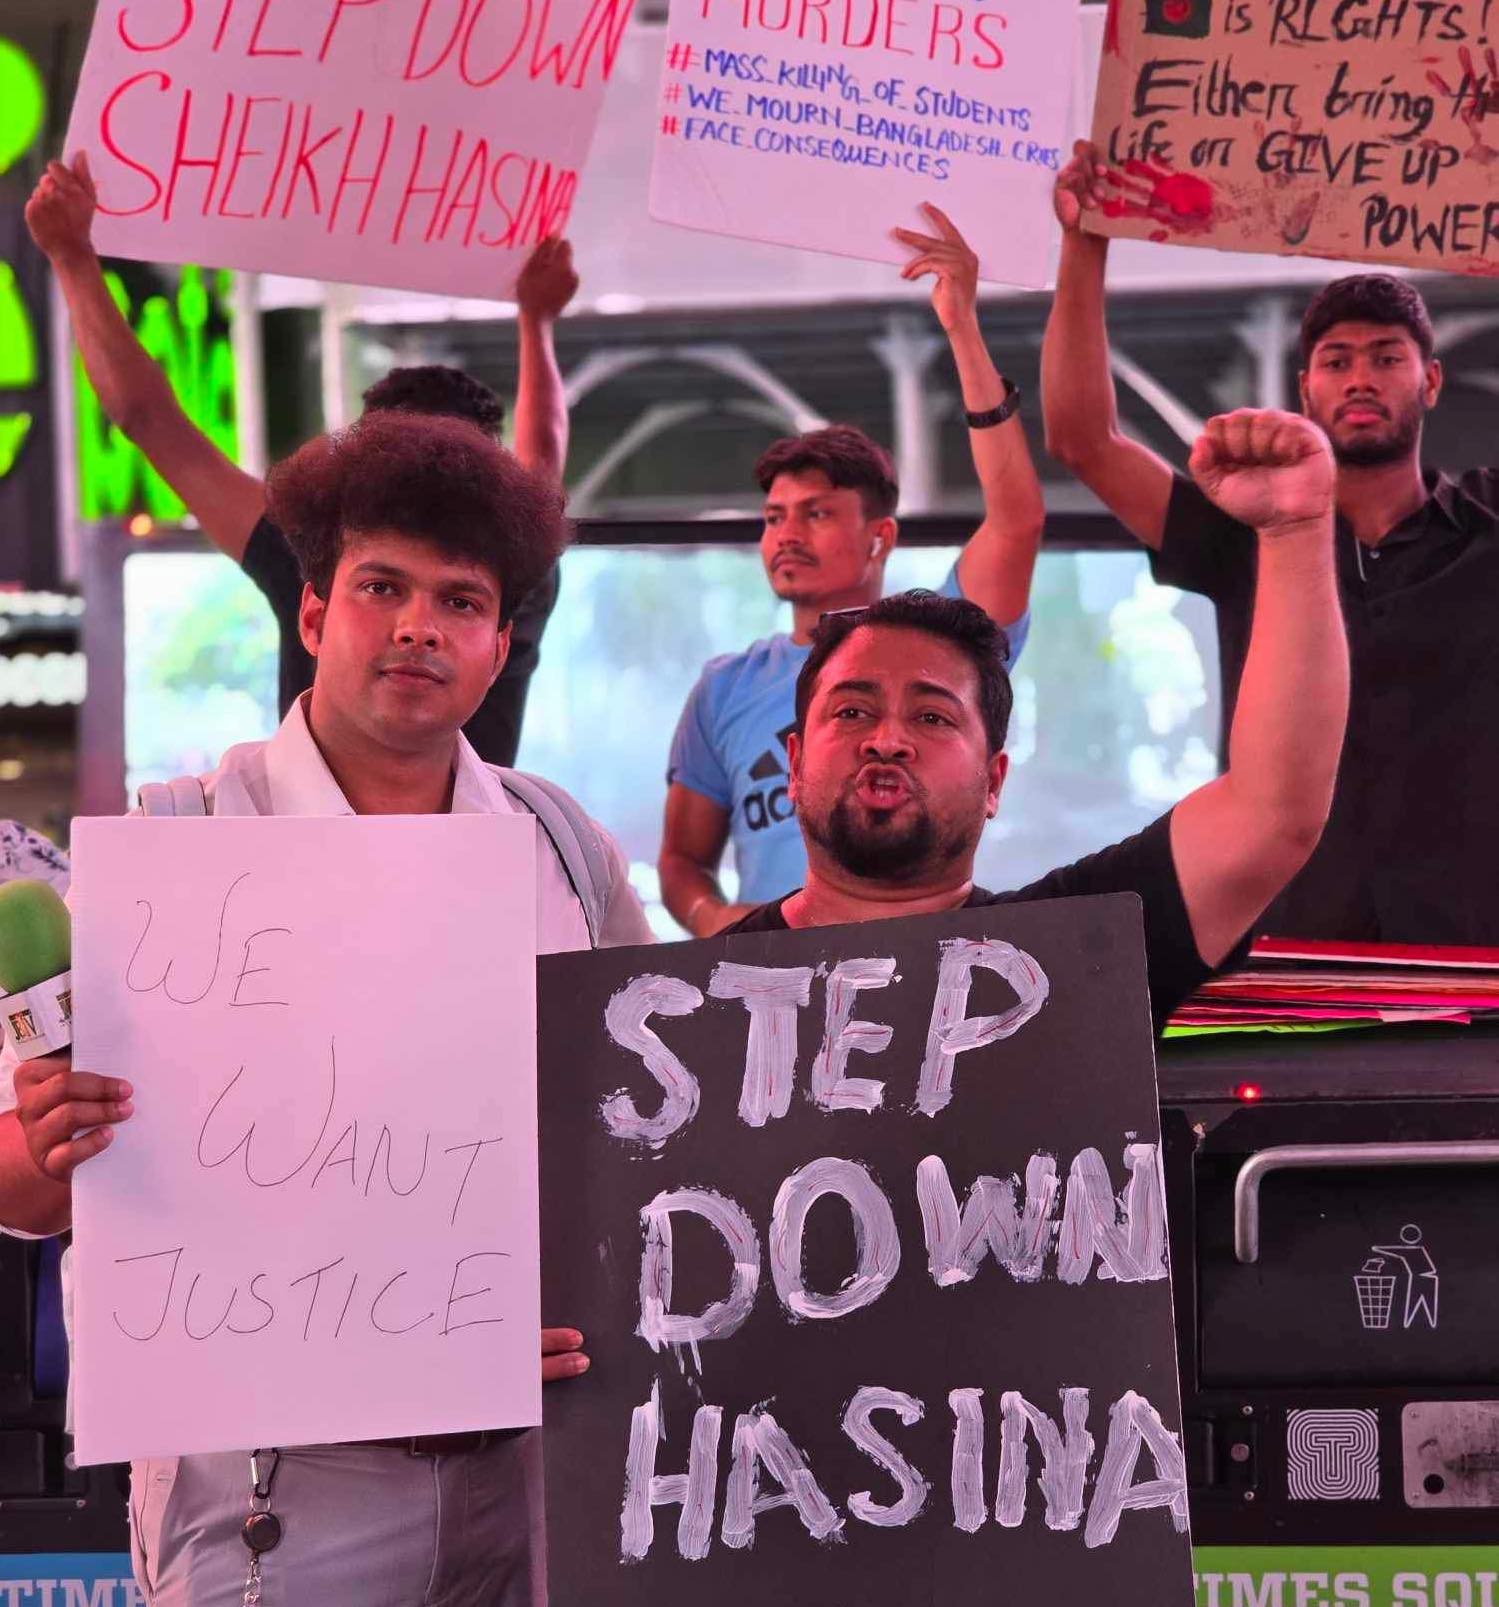 STEP DOWN
SHEIKH HASINA
MURDERS
#MASS_KILLING_OF_STUDENTS
#WE_MOURN_BANGLADESH_CRIES
#FACE_CONSEQUENCES
is RIGHTS!
Either bring
life or GIVE UP
POWER
WE
WANT
JUSTICE
STEP
DOWN
HASINA